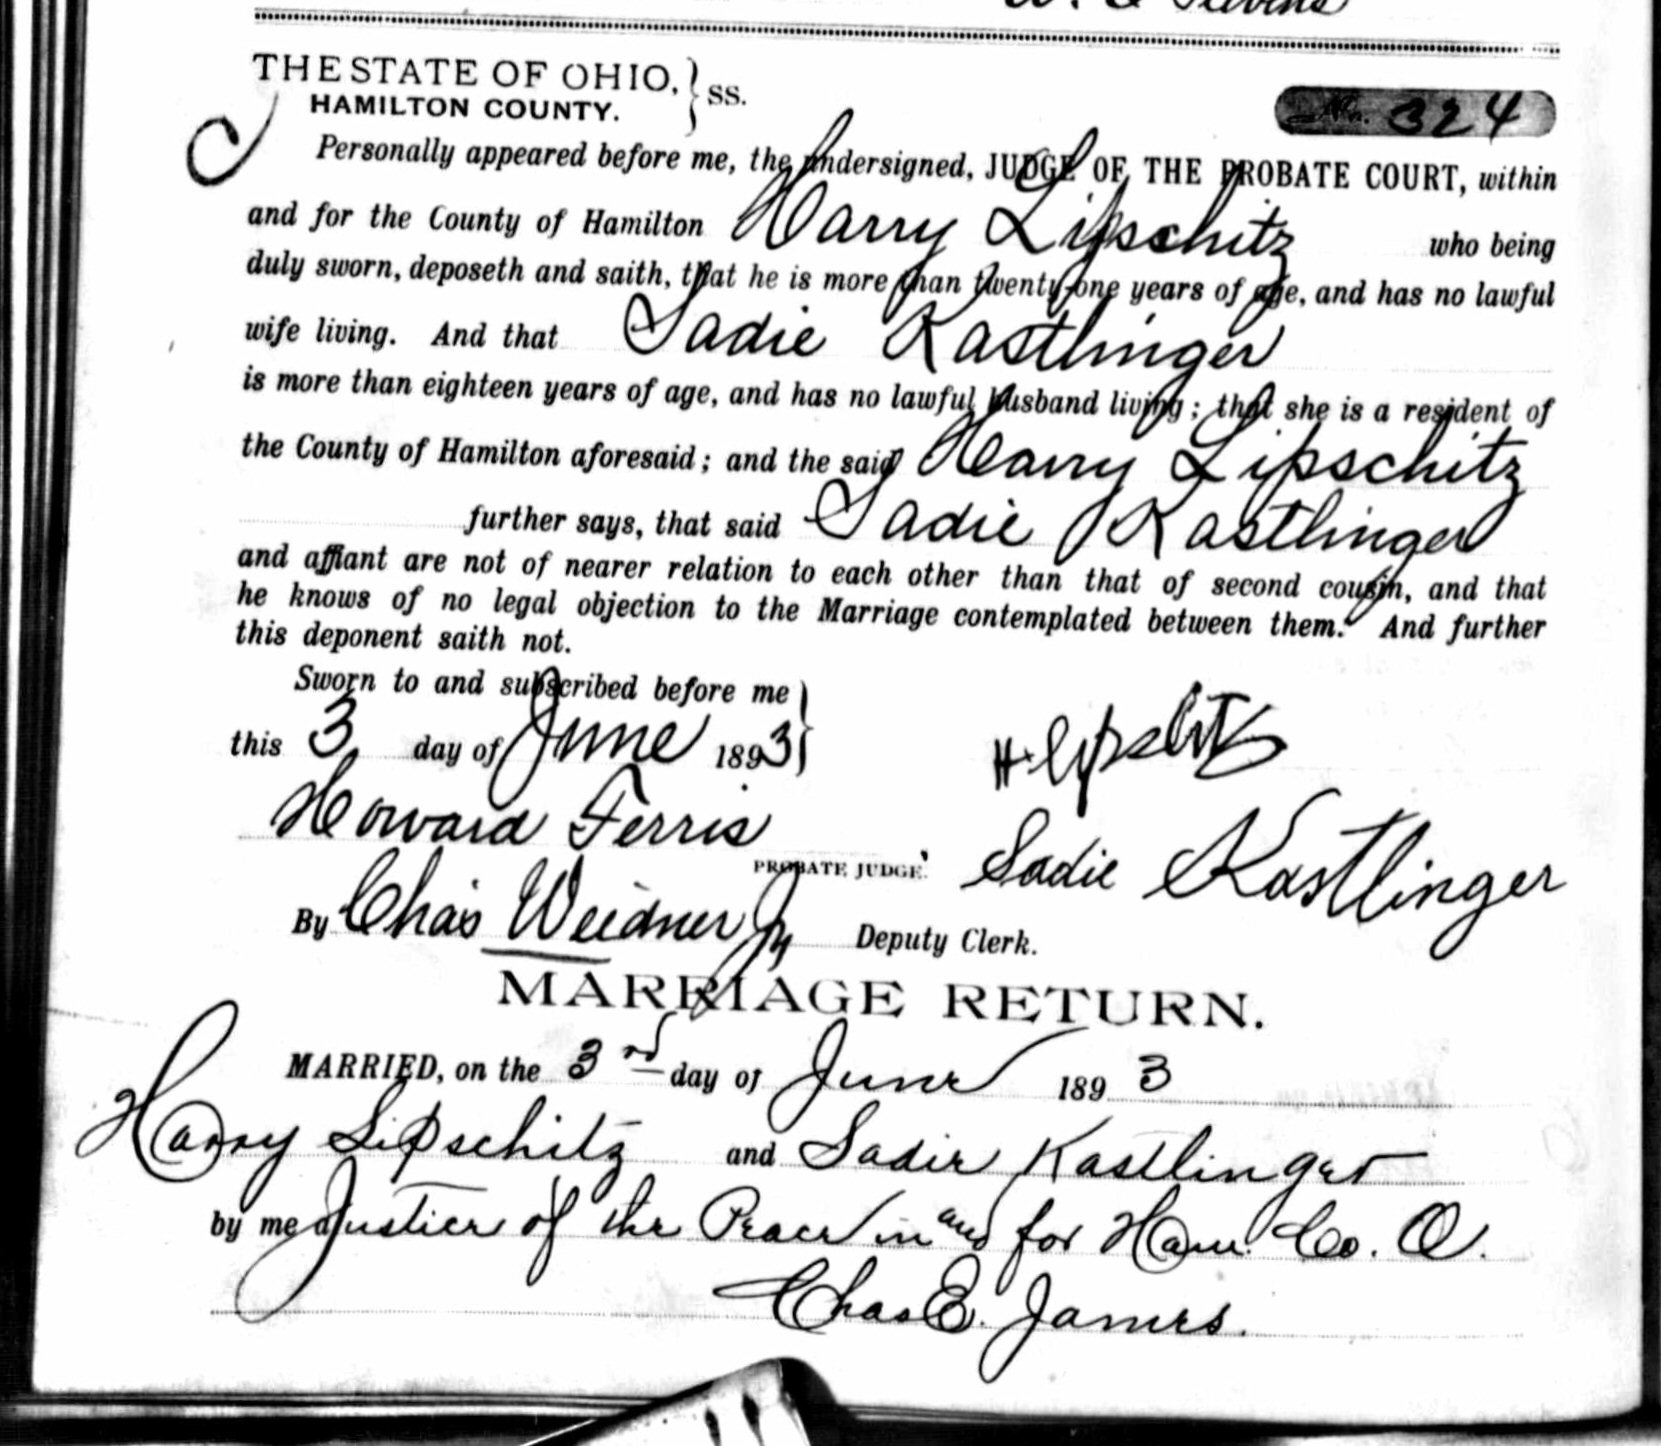 THE STATE OF OHIO, } SS.
HAMILTON COUNTY.
No. 324
Personally appeared before me, the undersigned, JUDGE OF THE PROBATE COURT, within
and for the County of Hamilton Harry Lipschitz who being
duly sworn, deposeth and saith, that he is more than twenty-one years of age, and has no lawful
wife living. And that Sadie Kastlinger
is more than eighteen years of age, and has no lawful husband living; that she is a resident of
the County of Hamilton aforesaid; and the said Harry Lipschitz
further says, that said Sadie Kastlinger
and affiant are not of nearer relation to each other than that of second cousin, and that
he knows of no legal objection to the Marriage contemplated between them. And further
this deponent saith not.
Sworn to and subscribed before me }
this 3 day of June 1893 } H. Lipschitz
Howard Ferris
PROBATE JUDGE. Sadie Kastlinger
By Chas Weidner Jr Deputy Clerk.
MARRIAGE RETURN.
MARRIED, on the 3rd day of June 1893
Harry Lipschitz and Sadie Kastlinger
by me a Justice of the Peace in and for Ham. Co. O.
Chas E. James.